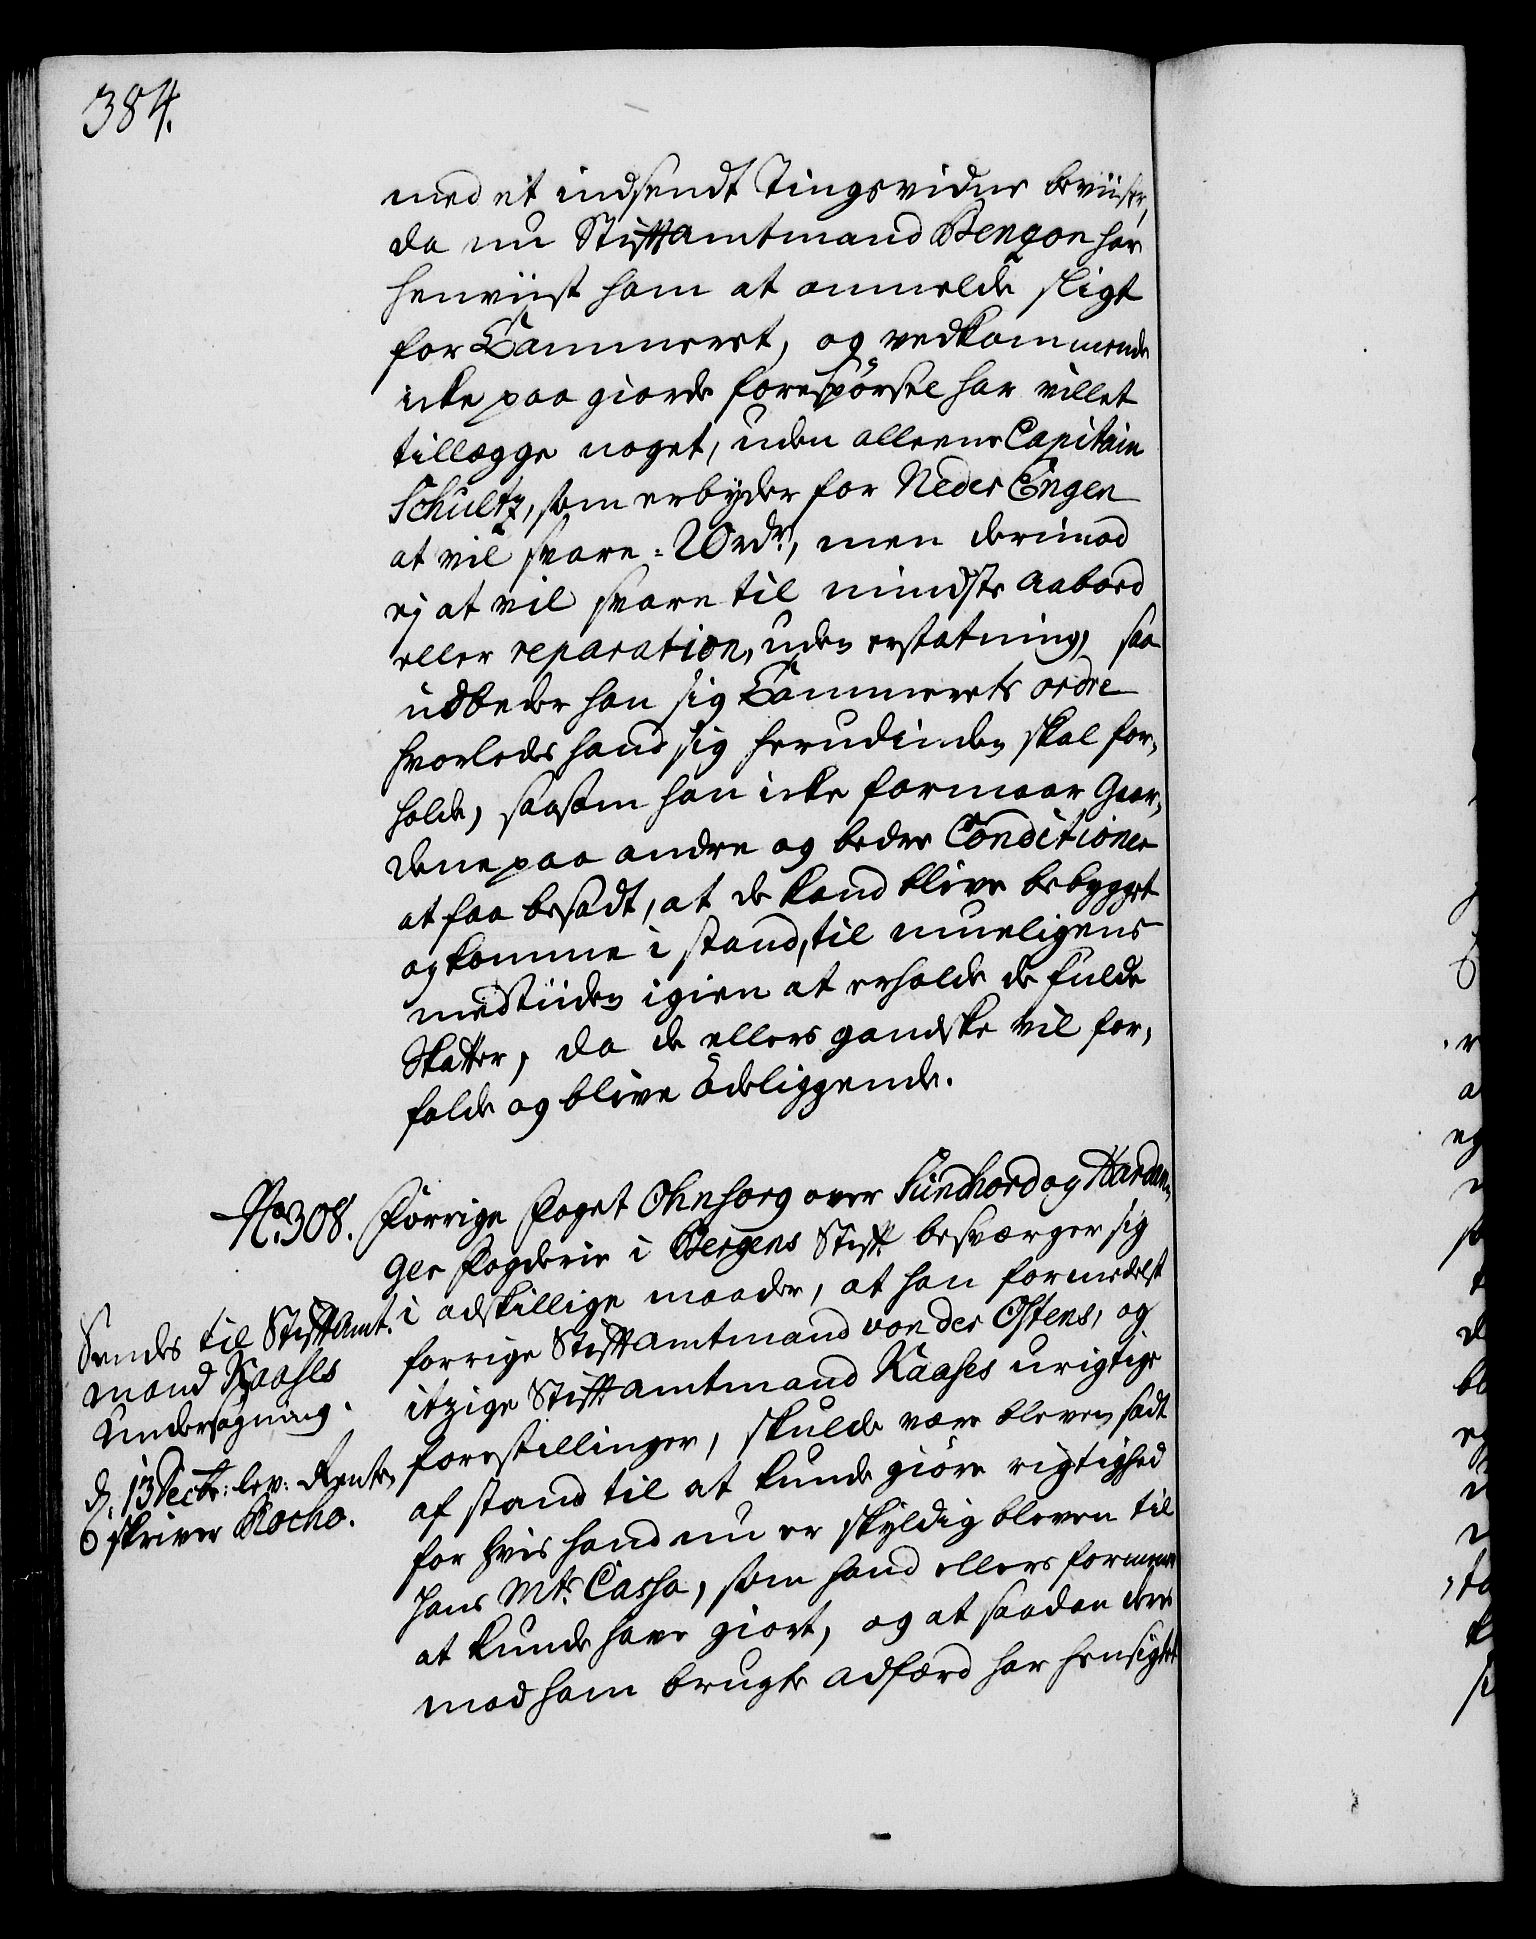 384.
med et indsendt Tingsvidne beviiser,
da nu Stiftamtmand Benzon har
henviist ham at anmelde sligt
for Cammeret, og vedkommende
icke paa giorde forespörsel har villet
tillægge noget, uden alleene Capitain
Schultz, som erbyder for Neder Engen
at vil svare = 20 rdr, men derimod
ej at vil svare til mindste Aabod
eller reparation, uden erstatning, saa
udbeder han sig Cammerets ordre
hvorledes hand sig herudinden skal for,
holde, saasom han icke formaar Gaar,
dene paa andre og bedre Conditioner
at faa besadt, at de kand blive bebygget
og komme i stand, til mueligens
med tiiden igien at erholde de fulde
Skatter, da de ellers gandske vil for,
falde og blive ödeliggende.
No. 308. Forrige Foget Ohnsorg over Sundhord og Hardan,
ger Fogderie i Bergens Stift besværger sig
i adskillige maader, at han formedelst
forrige Stiftamtmand von der Ostens, og
itzige Stiftamtmand Kaases urigtige
forestillinger, skulde være bleven sadt
af stand til at kunde giøre rigtighed
for hvis hand nu er skyldig bleven til
Hans Mts. Cassa, som hand ellers formeener
at kunde have giort, og at saadan deres
mod ham brugte adfærd har hensigtet
Sendes til Stiftamt,
mand Kaases
Undersøgning.
d. 13 Decbr: lev: Rente,
skriver Kocho.